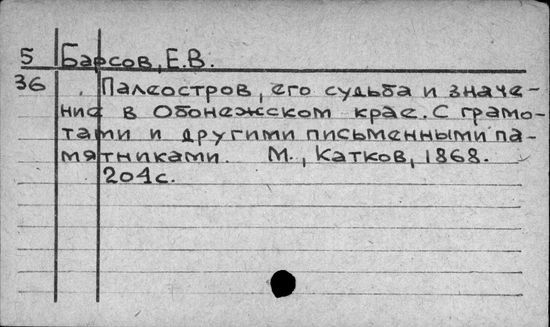 5 Барсов, Е.В.
36 Палеостров, его судьба и значе-
ние в Обонежском крае. С грамо-
тами и другими письменными па-
мятниками. М., Катков, 1868.
204с.